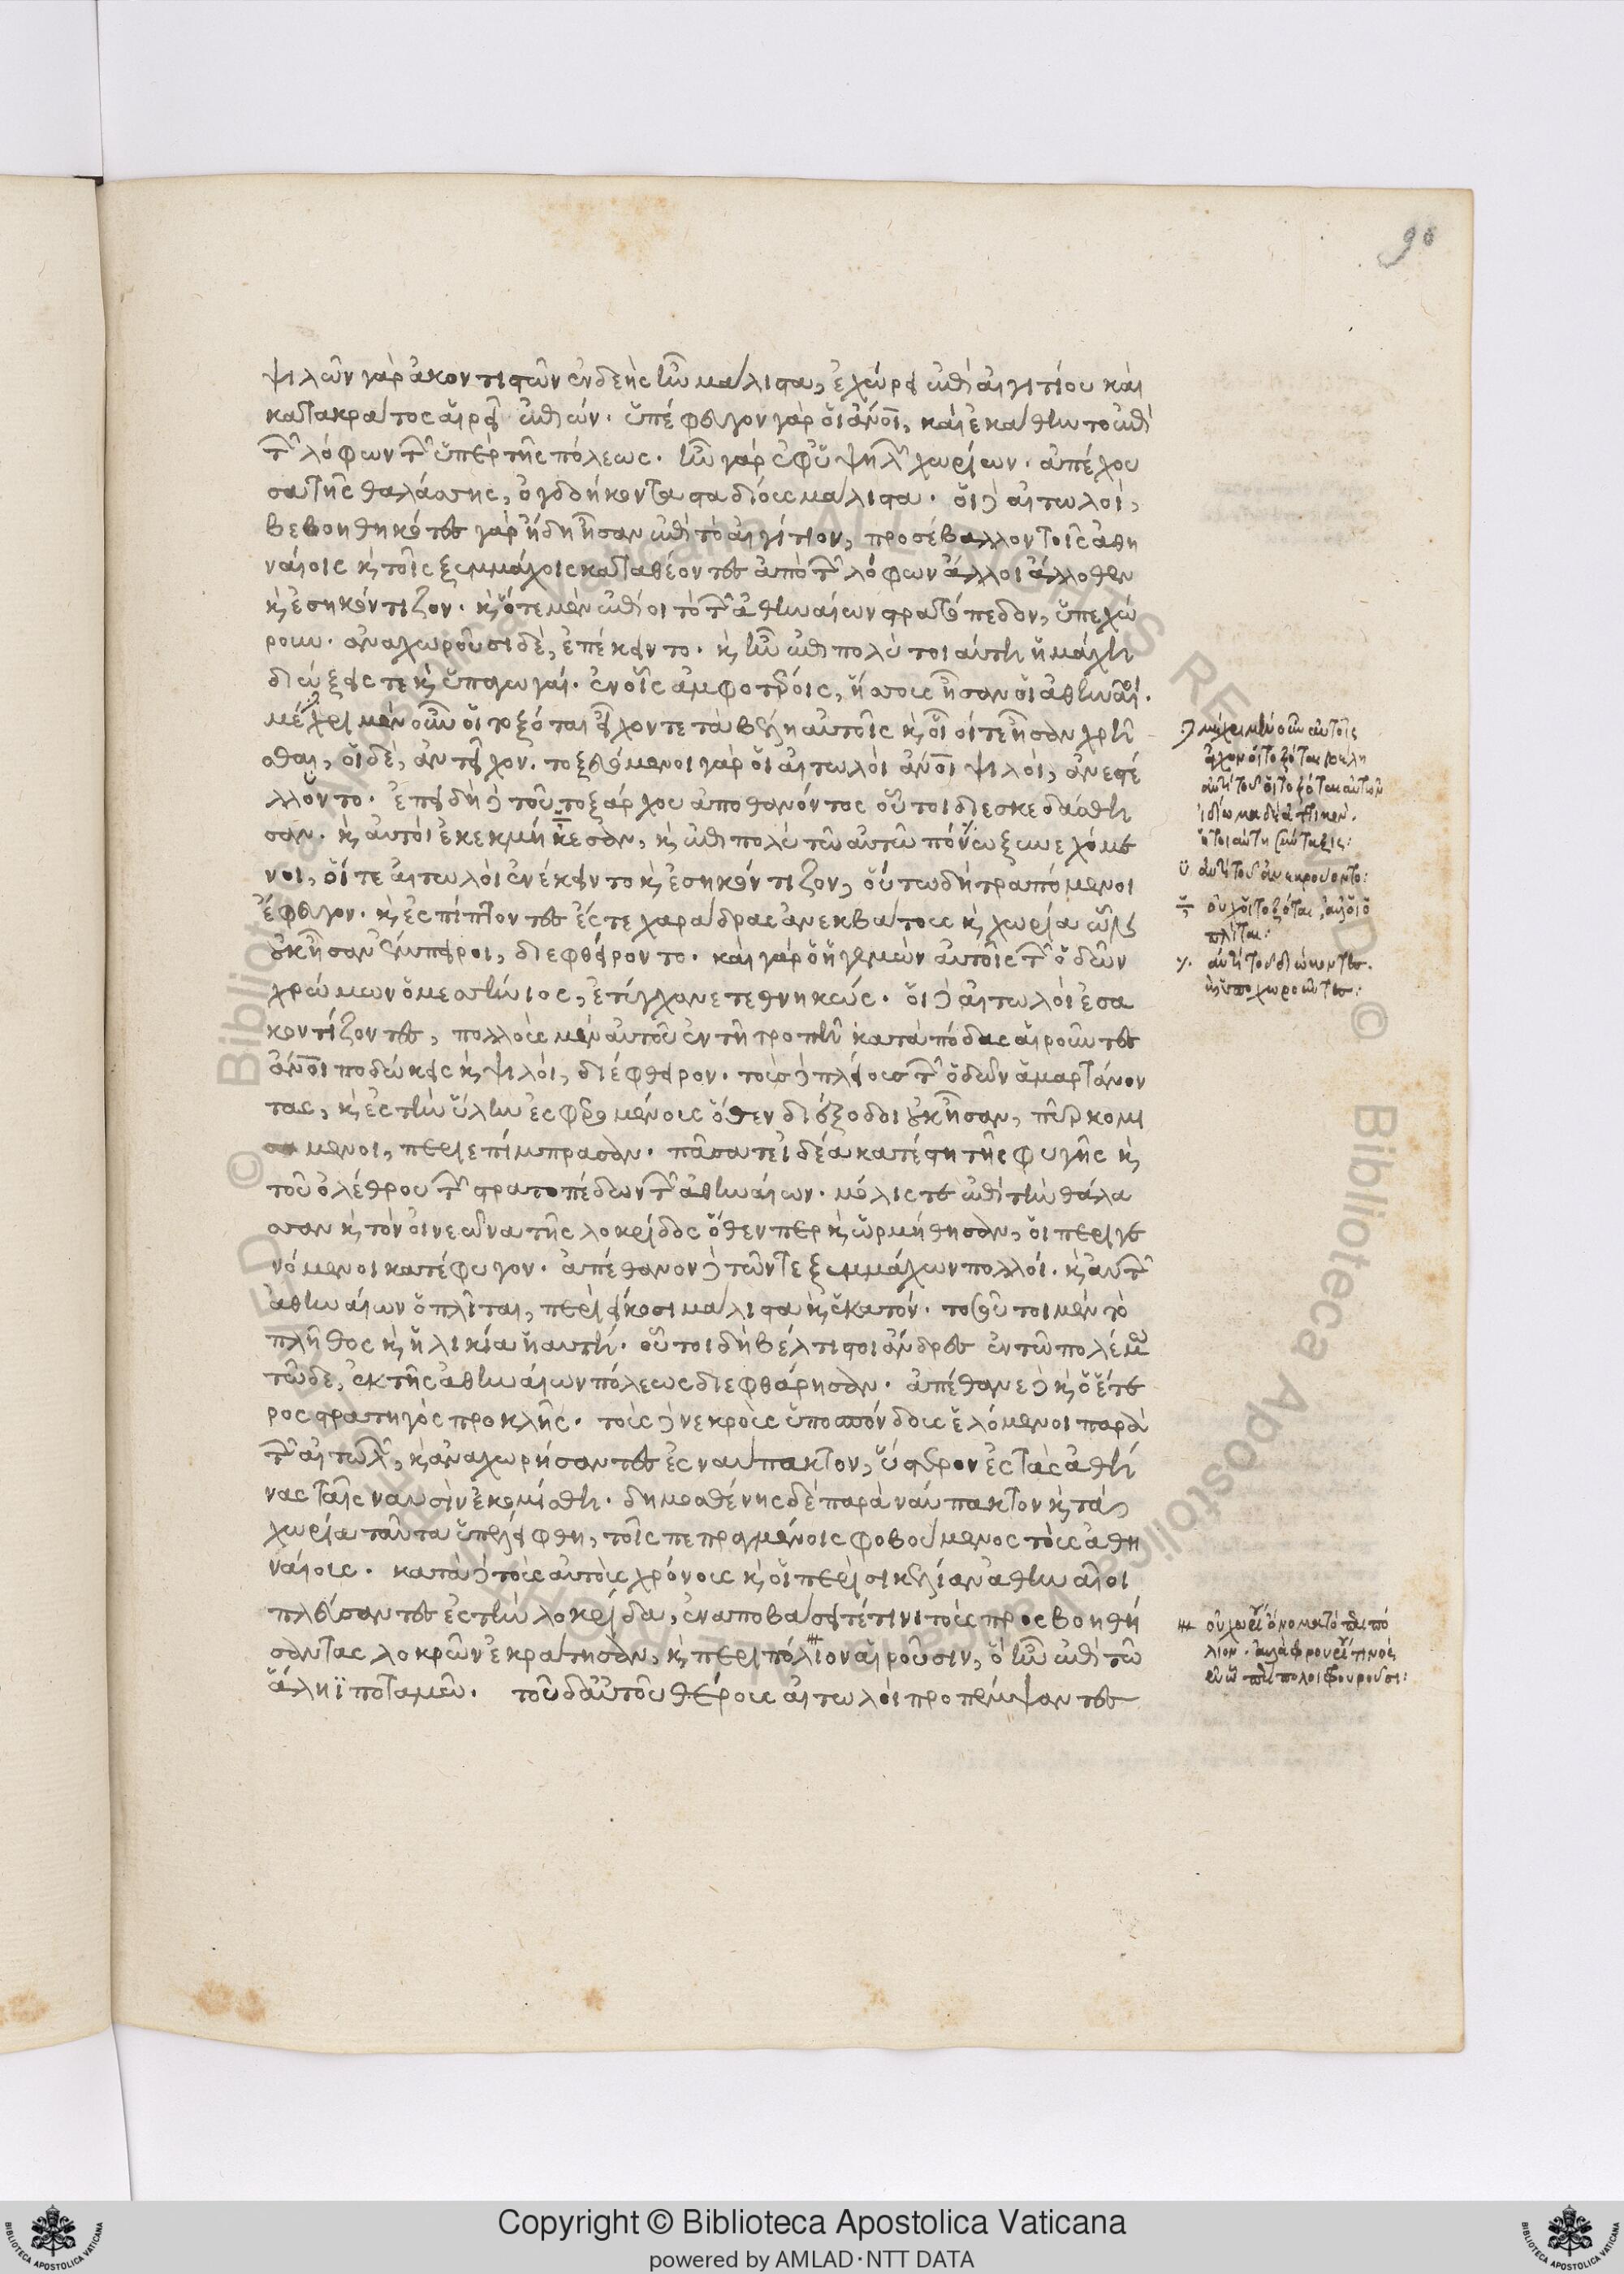 90
ψιλῶν γὰρ ἀκοντιστῶν ἐνδεὴς ἦν μάλιστα, ἐχώρει ἐπὶ αἰγιτίου καὶ
κατακράτος αἱρεῖ ἐπιών. ὑπέφευγον γὰρ οἱ ἄνοι, καὶ ἐκάθηντο ἐπὶ
τῶν λόφων τῶν ὑπὲρ τῆς πόλεως. ἦν γὰρ ἐφ' ὑψηλῶν χωρίων. ἀπέχου
σα τῆς θαλάσσης, ὀγδοήκοντα σταδίους μάλιστα. οἱ δὲ αἰτωλοὶ,
βεβοηθηκότες γὰρ ἤδη ἦσαν ἐπὶ τὸ αἰγίτιον, προσέβαλλον τοῖς ἀθη
ναίοις κ τοῖς ξυμμάχοις καταθέοντες ἀπὸ τῶν λόφων ἄλλοι ἄλλοθεν
κ ἐσηκόντιζον. κ ὅτε μὲν ἐπίοι τὸ τῶν ἀθηναίων στρατόπεδον, ὑπεχώ
ρουν. ἀναχωροῦσι δὲ, ἐπέκειντο. κ ἦν ἐπὶ πολὺ τοιαύτη ἡ μάχη
διώξεις τε κ ὑπαγωγαί. ἐν οἷς ἀμφοτέροις, ἥσσους ἦσαν οἱ ἀθηναῖοι.
μέχρι μὲν οὖν οἱ τοξόται εἶχον τε τὰ βέλη αὐτοῖς κ οἷοί τε ἦσαν χρῆ
σθαι, οἱ δὲ, ἀντεῖχον. τοξευόμενοι γὰρ οἱ αἰτωλοὶ ἄνοι ψιλοὶ, ἀνεστέ
λλοντο. ἐπειδὴ δὲ τοῦ τοξάρχου ἀποθανόντος οὗτοι διεσκεδάσθη
σαν. κ αὐτοὶ ἐκεκμήκεσαν, κ ἐπὶ πολὺ τῷ αὐτῷ πόνῳ ξυνεχόμε
νοι, οἵ τε αἰτωλοὶ ἐνέκειντο κ ἐσηκόντιζον, οὕτω δὴ τραπόμενοι
ἔφευγον. κ ἐσπίπτοντες ἔς τε χαράδρας ἀνεκβάτους κ χωρία ὧν
οὐκ ἦσαν ἔμπειροι, διεφθείροντο. καὶ γὰρ ὁ ἡγεμὼν αὐτοῖς τῶν ὁδῶν
χρώμων ὁ μεσσήνιος, ἐτύγχανε τεθνηκώς. οἱ δὲ αἰτωλοὶ ἐσα
κοντίζοντες, πολλοὺς μὲν αὐτοῦ ἐν τῆ τροπῆ κατὰ πόδας αἱροῦντες
ἄνοι ποδώκεις κ ψιλοὶ, διέφθειρον. τοὺς δὲ πλείους τῶν ὁδῶν ἁμαρτάνον
τας, κ ἐς τὴν ὕλην ἐσφερομένους ὅθεν διέξοδοι οὐκ ἦσαν, πῦρ κομι
σάμενοι, περιεπίμπρασαν. πᾶσά τε ἰδέα κατέστη τῆς φυγῆς κ
τοῦ ὀλέθρου τῶν στρατοπέδων τῶν ἀθηναίων. μόλις τε ἐπὶ τὴν θάλα
σσαν κ τὸν οἰνεῶνα τῆς λοκρίδος ὅθενπερ κ ὡρμήθησαν, οἱ περιγε
νόμενοι κατέφυγον. ἀπέθανον δὲ τῶν τε ξυμμάχων πολλοί. κ αὐτῶν
ἀθηναίων ὁπλῖται, περὶ εἴκοσι μάλιστα κ ἑκατόν. τοσοῦτοι μὲν τὸ
πλῆθος κ ἡλικία ἡ αὐτή. οὗτοι δὴ βέλτιστοι ἄνδρες ἐν τῶ πολέμω
τῶδε, ἐκ τῆς ἀθηναίων πόλεως διεφθάρησαν. ἀπέθανε δὲ κ ὁ ἕτε
ρος στρατηγὸς προκλῆς. τοὺς δὲ νεκροὺς ὑποσπόνδους ἑλόμενοι παρὰ
τῶν αἰτωλῶν, κ ἀναχωρήσαντες ἐς ναύπακτον, ὕστερον ἐς τὰς ἀθή
νας ταῖς ναυσὶν ἐκομίσθη. δημοσθένης δὲ παρὰ ναύπακτον κ τὰ
χωρία ταῦτα ὑπελείφθη, τοῖς πεπραγμένοις φοβούμενος τοὺς ἀθη
ναίους. κατὰ δὲ τοὺς αὐτοὺς χρόνους κ οἱ περὶ σικελίαν ἀθηναῖοι
πλεύσαντες ἐς τὴν λοκρίδα, ἐν ἀποβάσει τέ τινι τοὺς προσβοηθή
σαντας λοκρῶν ἐκράτησαν, κ περιπόλιον αἱροῦσιν, ὃ ἦν ἐπὶ τῶ
ἅληϊ ποταμῶ. τοῦ δ' αὐτοῦ θέρους αἰτωλοὶ προπέμψαντες
μέχρι μὲν οὖν αὐτοῖς
εἶχον οἱ τοξόται βέλη
ἀντὶ τοῦ οἱ τοξόται αὐτῶν
ἰδίωμα δὲ ἀττικὸν.
ἀντὶ τοῦ ἀνεκρούοντο:
οὐχ οἱ τοξόται, ἀλλ' οἱ ὁ
πλῖται:
ἀντὶ τοῦ διώκοντες.
κ ὑποχωροῦντες:
οὐκ ἔστι ὄνομα τὸ περιπό
λιον. ἀλλὰ φρούριόν τι
ἐν ᾧ περίπολοι φρουροῦσι:
Copyright © Biblioteca Apostolica Vaticana
powered by AMLAD·NTT DATA